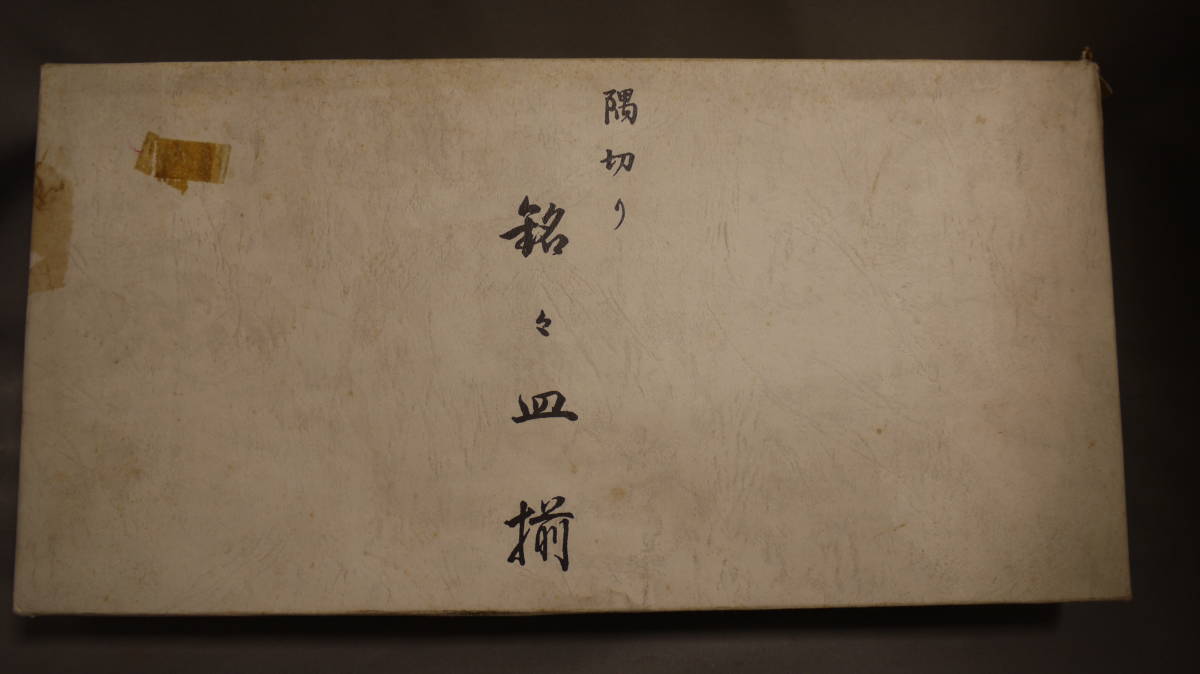 隅切り
銘々皿揃